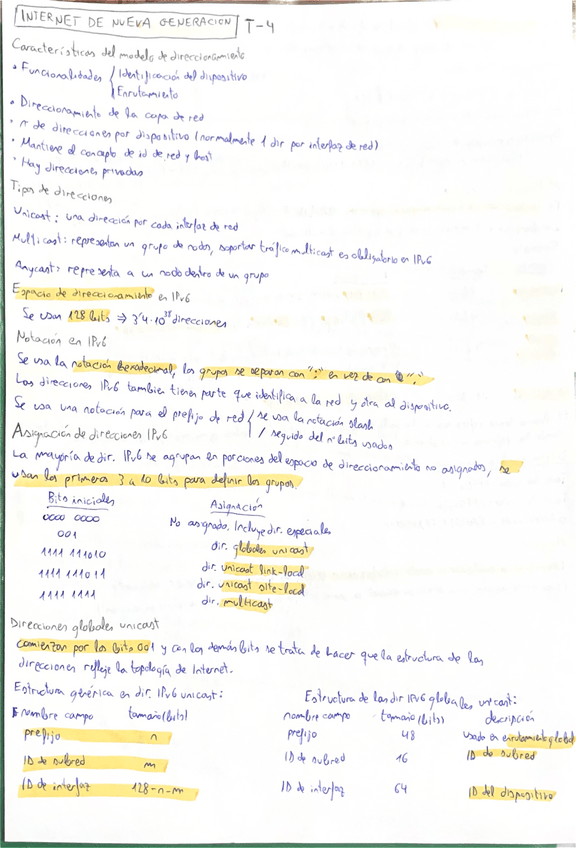 INTERNET DE NUEVA GENERACION T-4
Características del modelo de direccionamiento
• Funcionalidades { Identificación del dispositivo
Enrutamiento
• Direccionamiento de la capa de red
• nº de direcciones por dispositivo (normalmente 1 dir por interfaz de red)
• Mantiene el concepto de id de red y host
• Hay direcciones privadas
Tipos de direcciones
Unicast: una dirección por cada interfaz de red
Multicast: representan un grupo de nodos, soportar tráfico multicast es obligatorio en IPv6
Anycast: representa a un nodo dentro de un grupo
Espacio de direccionamiento en IPv6
Se usan 128 bits ⇒ 3'4·10³⁸ direcciones
Notación en IPv6
Se usa la notación hexadecimal, los grupos se separan con ":" en vez de con "."
Las direcciones IPv6 tambien tienen parte que identifica a la red y otra al dispositivo.
Se usa una notación para el prefijo de red { se usa la notación slash
/ seguido del nº bits usados
Asignación de direcciones IPv6
La mayoría de dir. IPv6 se agrupan en porciones del espacio de direccionamiento no asignados, se
usan los primeros 3 a 10 bits para definir los grupos.
Bits iniciales Asignación
0000 0000 No asignado. Incluye dir. especiales
001 dir. globales unicast
1111 111010 dir. unicast link-local
1111 111011 dir. unicast site-local
1111 1111 dir. multicast
Direcciones globales unicast
comienzan por los bits 001 y con los demás bits se trata de hacer que la estructura de las
direcciones refleje la topología de Internet.
Estructura genérica en dir. IPv6 unicast: Estructura de las dir IPv6 globales unicast:
nombre campo tamaño (bits) nombre campo tamaño (bits) descripción
prefijo n prefijo 48 usado en enrutamiento global
ID de subred m ID de subred 16 ID de subred
ID de interfaz 128-n-m ID de interfaz 64 ID del dispositivo